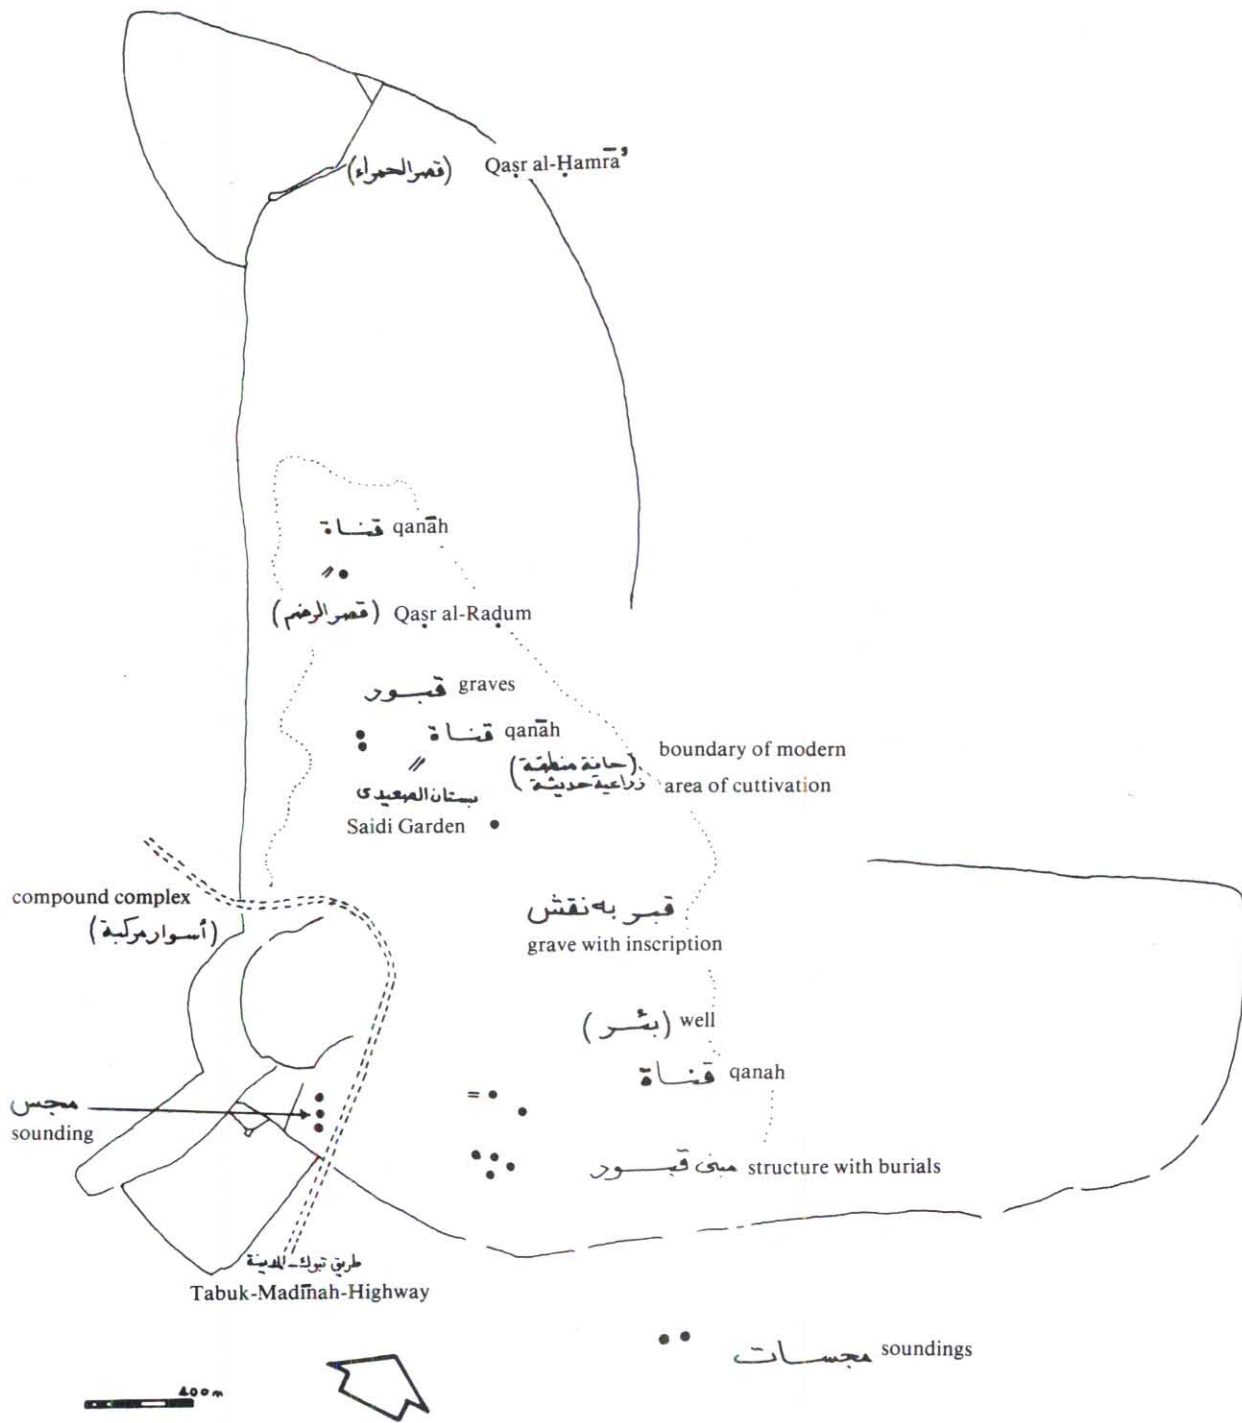 (قصر الحمراء) Qaṣr al-Ḥamrā'
قناة qanāh
(قصر الرضم) Qaṣr al-Raḍum
قبور graves
قناة qanāh
(حافة منطقة boundary of modern
زراعية حديثة) area of cuttivation
بستان الصعيدى
Saidi Garden
compound complex
(أسوار مركبة)
قبر به نقش
grave with inscription
(بئر) well
قناة qanah
مجس
sounding
مبنى قبور structure with burials
طريق تبوك - المدينة
Tabuk-Madīnah-Highway
مجسات soundings
400m